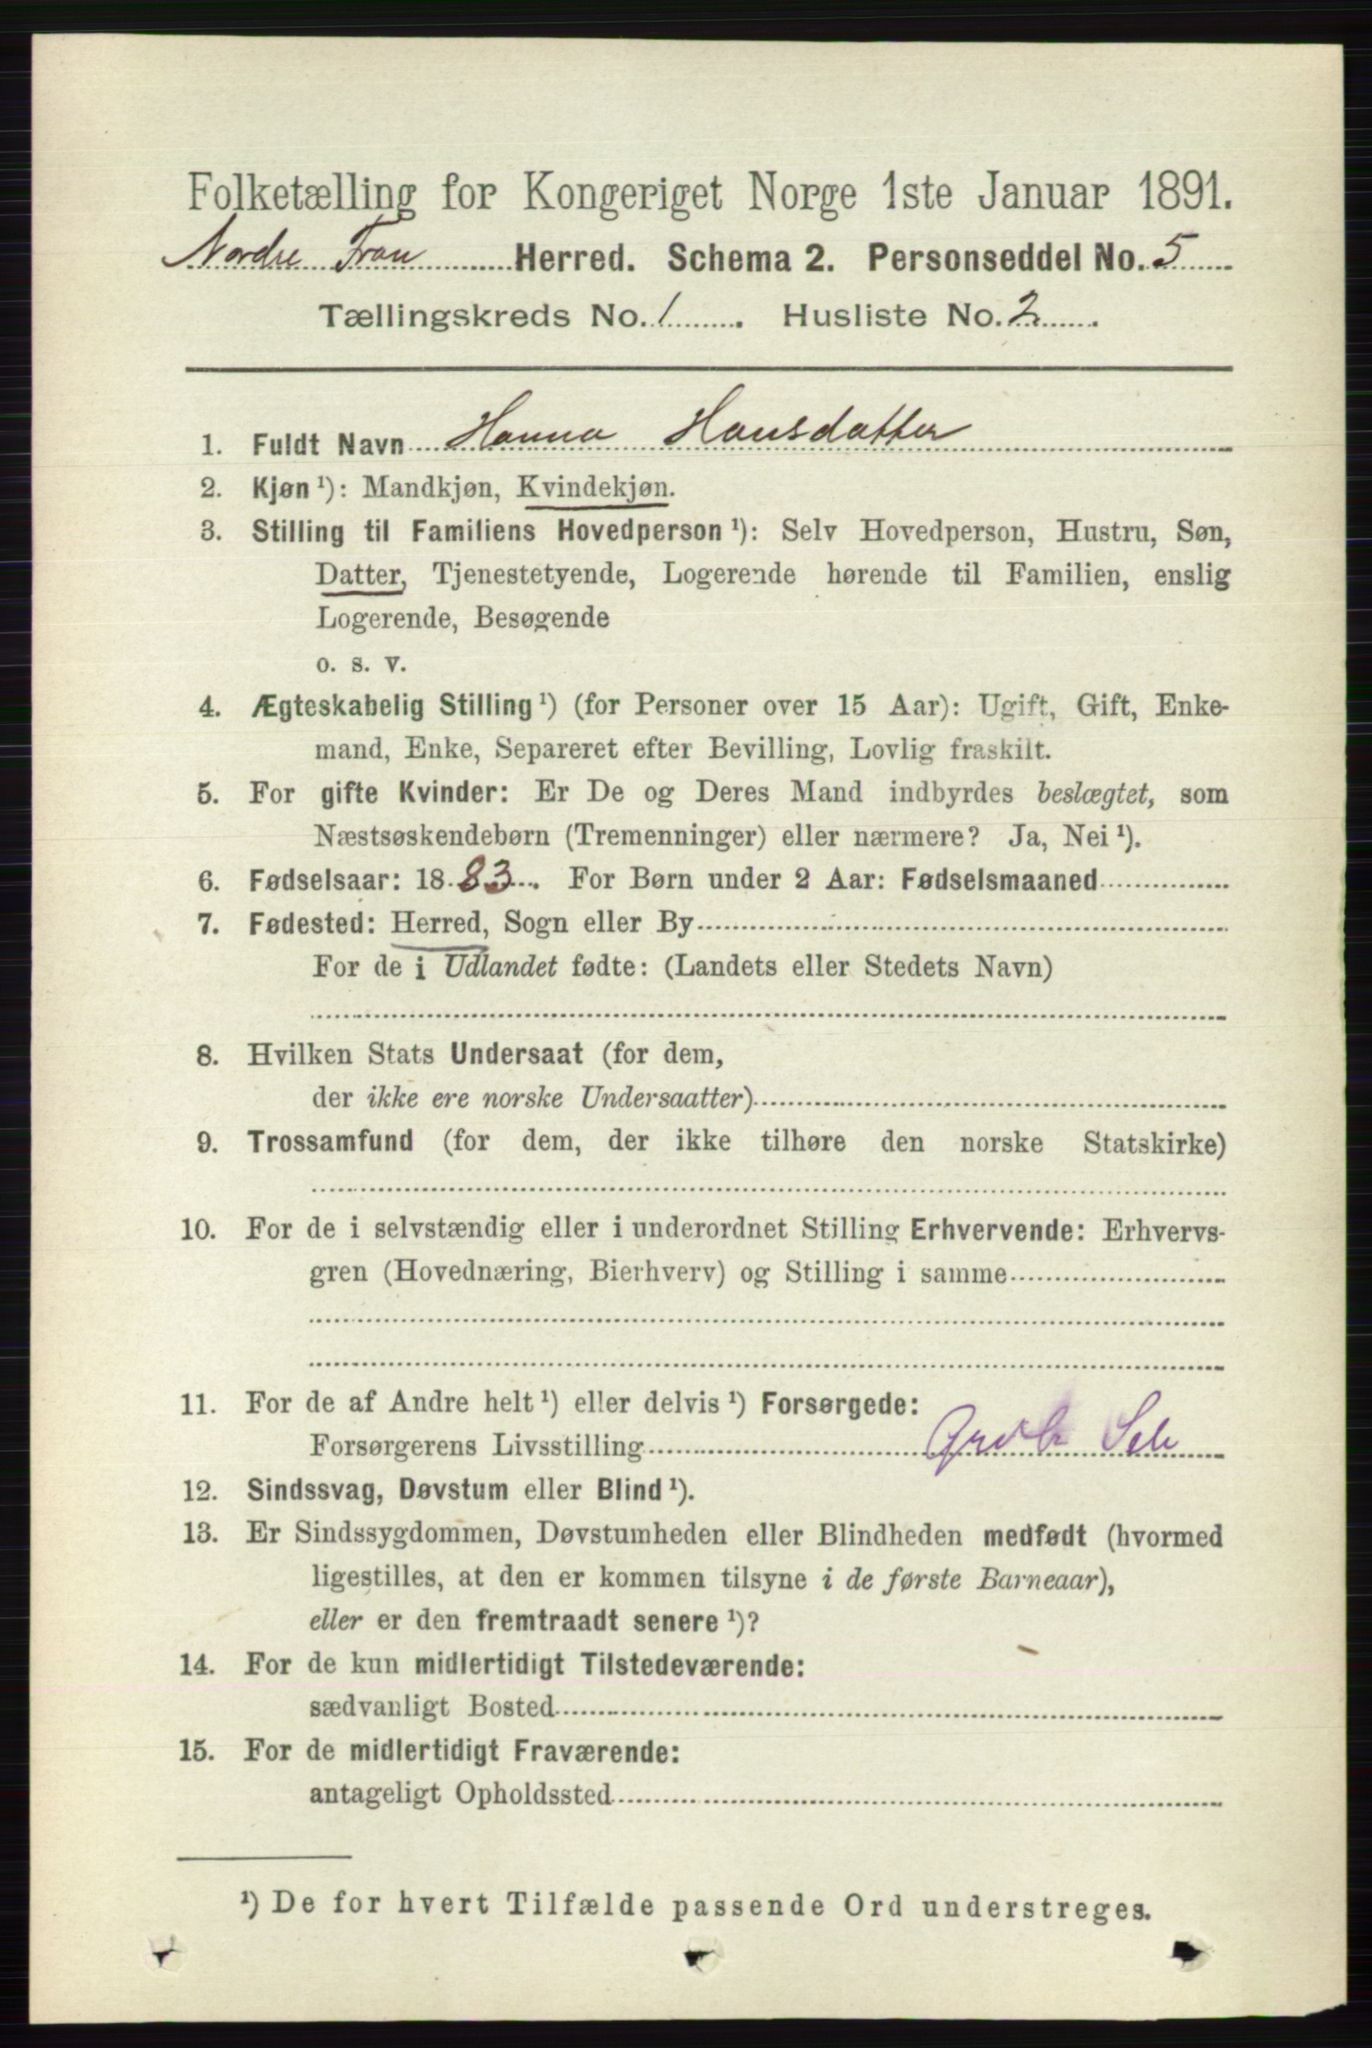 Folketælling for Kongeriget Norge 1ste Januar 1891.
Nordre Fron Herred. Schema 2. Personseddel No. 5
Tællingskreds No. 1. Husliste No. 2.
1. Fuldt Navn Hanna Hansdatter
2. Kjøn ¹): Mandkjøn, Kvindekjøn.
3. Stilling til Familiens Hovedperson ¹): Selv Hovedperson, Hustru, Søn,
Datter, Tjenestetyende, Logerende hørende til Familien, enslig
Logerende, Besøgende
o. s. v.
4. Ægteskabelig Stilling ¹) (for Personer over 15 Aar): Ugift, Gift, Enke-
mand, Enke, Separeret efter Bevilling, Lovlig fraskilt.
5. For gifte Kvinder: Er De og Deres Mand indbyrdes beslægtet, som
Næstsøskendebørn (Tremenninger) eller nærmere? Ja, Nei ¹).
6. Fødselsaar: 1883. For Børn under 2 Aar: Fødselsmaaned
7. Fødested: Herred, Sogn eller By
For de i Udlandet fødte: (Landets eller Stedets Navn)
8. Hvilken Stats Undersaat (for dem,
der ikke ere norske Undersaatter)
9. Trossamfund (for dem, der ikke tilhøre den norske Statskirke)
10. For de i selvstændig eller i underordnet Stilling Erhvervende: Erhvervs-
gren (Hovednæring, Bierhverv) og Stilling i samme
11. For de af Andre helt ¹) eller delvis ¹) Forsørgede:
Forsørgerens Livsstilling
12. Sindssvag, Døvstum eller Blind ¹).
13. Er Sindssygdommen, Døvstumheden eller Blindheden medfødt (hvormed
ligestilles, at den er kommen tilsyne i de første Barneaar),
eller er den fremtraadt senere ¹)?
14. For de kun midlertidigt Tilstedeværende:
sædvanligt Bosted
15. For de midlertidigt Fraværende:
antageligt Opholdssted
¹) De for hvert Tilfælde passende Ord understreges.